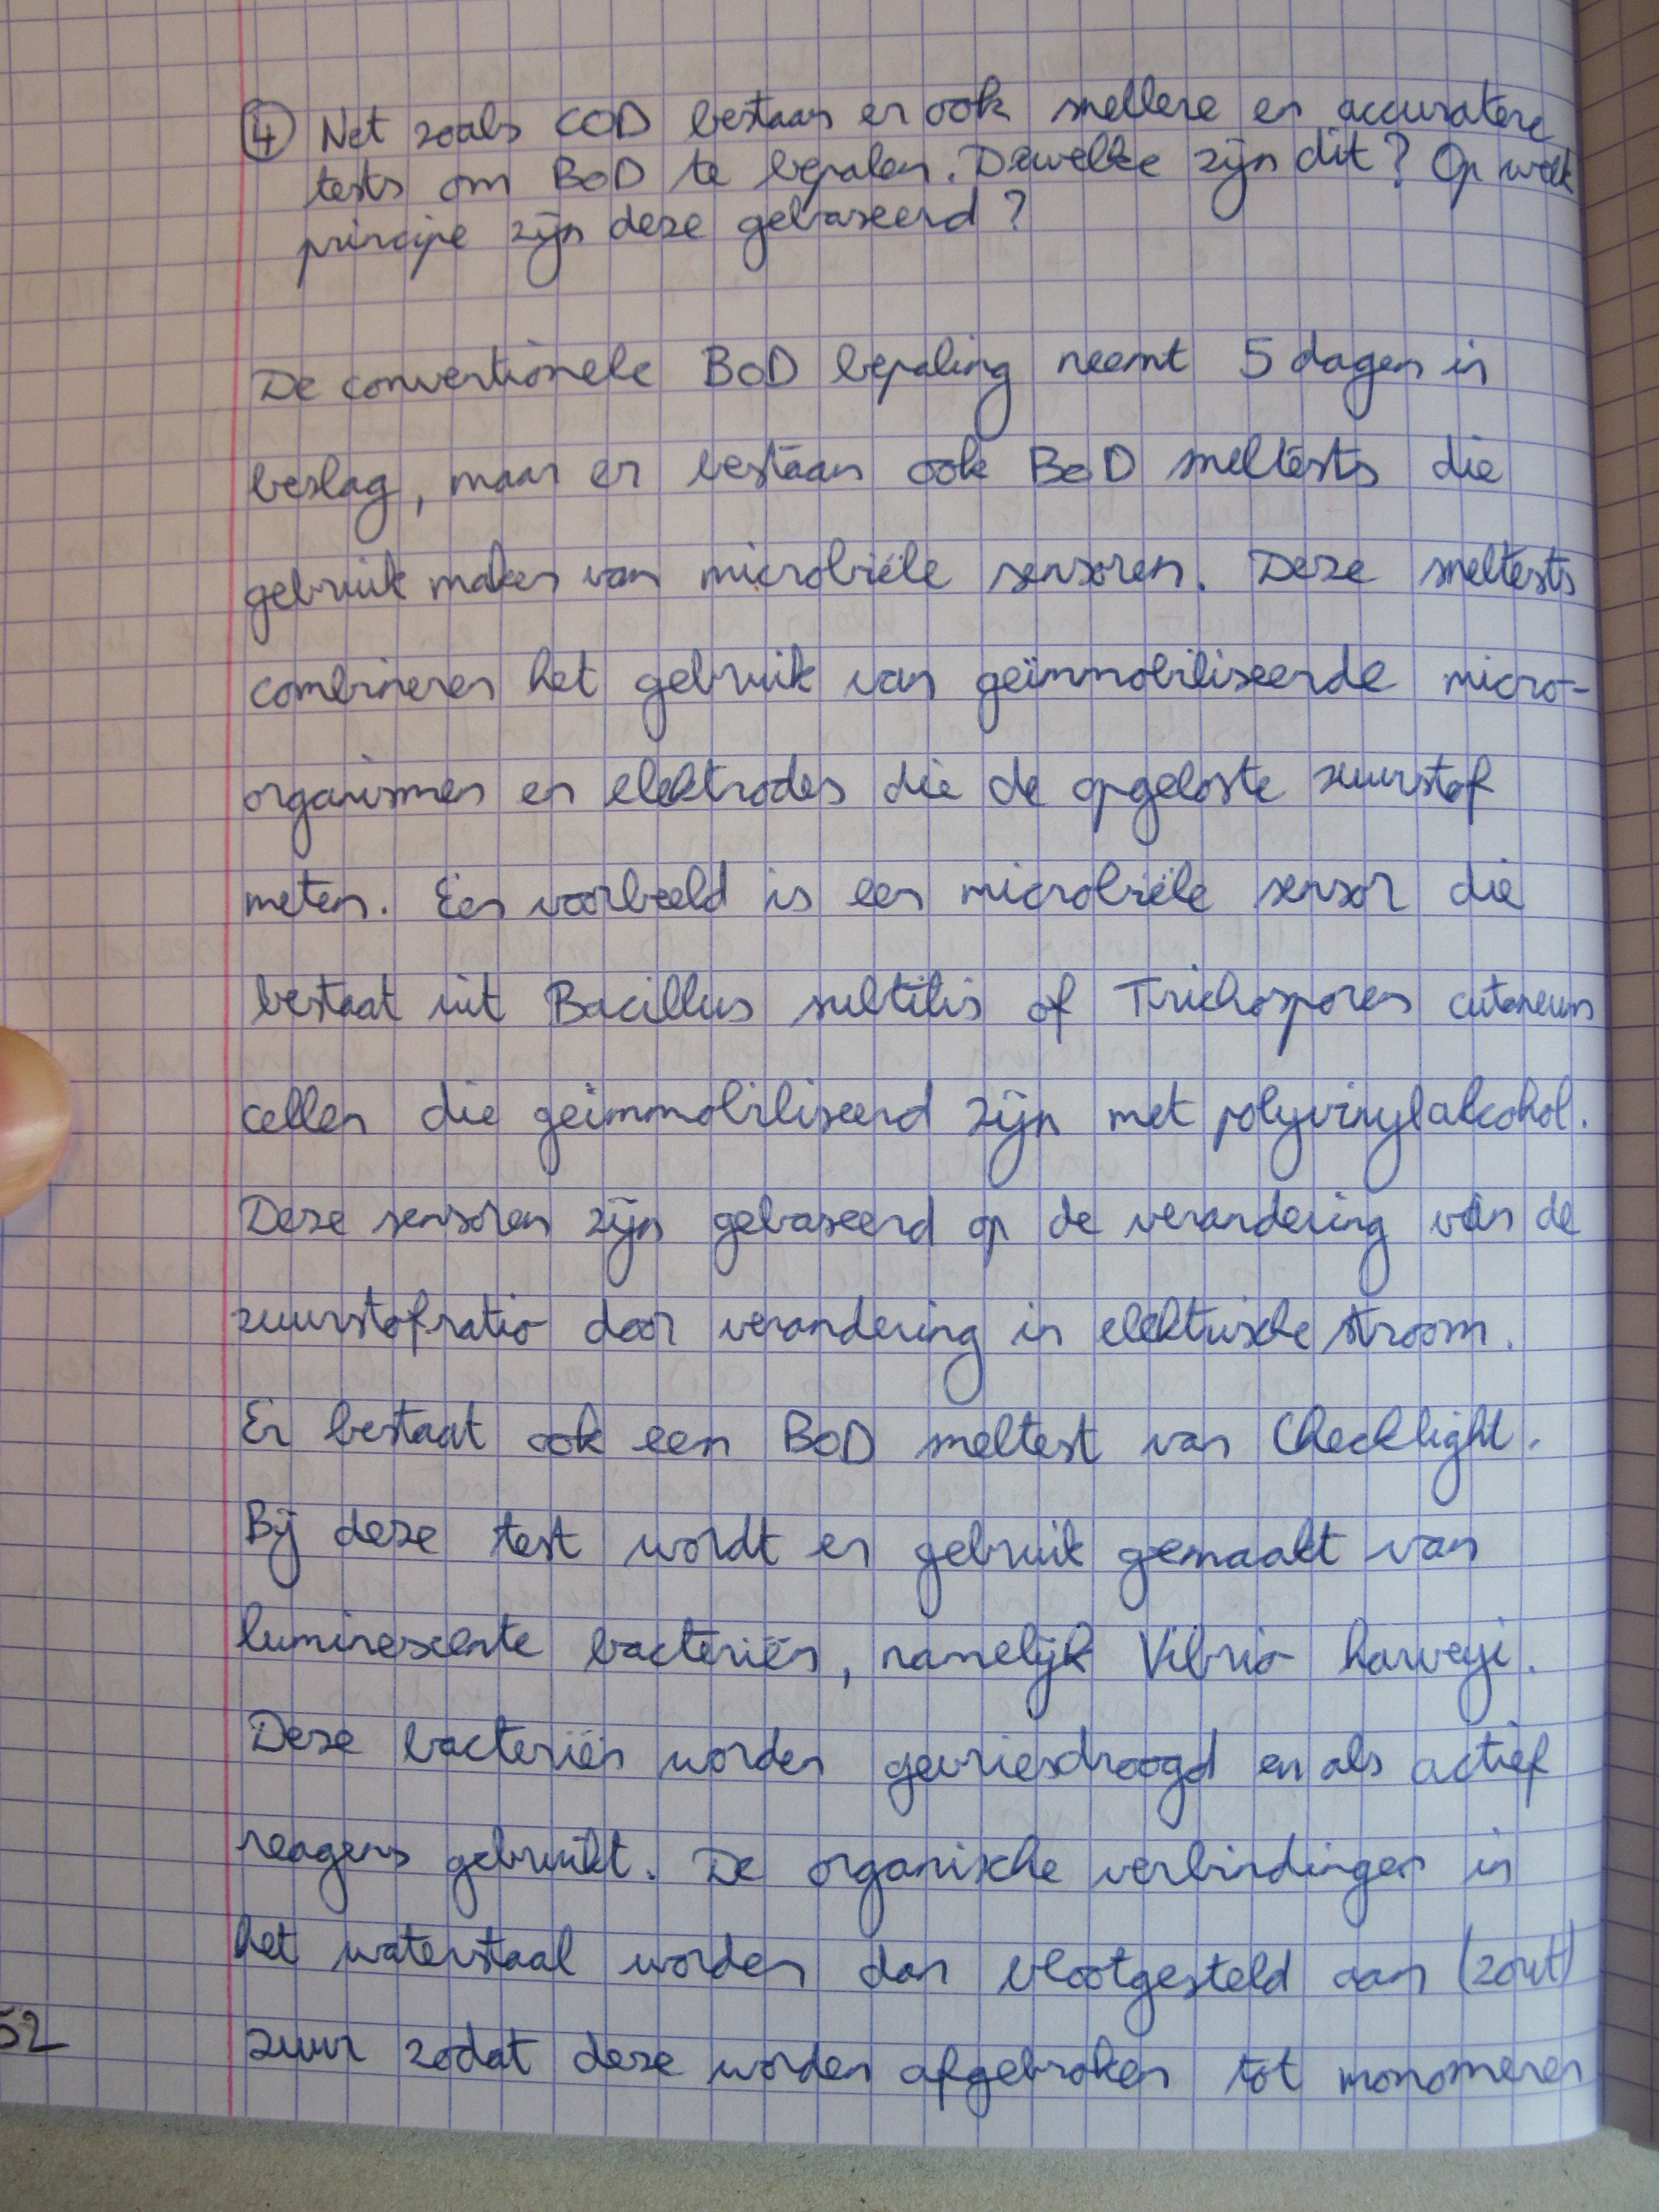 ④ Net zoals COD bestaan er ook snellere en accuratere
tests om BOD te bepalen. Dewelke zijn dit? Op welk
principe zijn deze gebaseerd?
De conventionele BOD bepaling neemt 5 dagen in
beslag, maar er bestaan ook BOD sneltests die
gebruik maken van microbiële sensoren. Deze sneltests
combineren het gebruik van geïmmobiliseerde micro-
organismen en elektrodes die de opgeloste zuurstof
meten. Een voorbeeld is een microbiële sensor die
bestaat uit Bacillus subtilis of Trichosporen cutaneum
cellen die geïmmobiliseerd zijn met polyvinylalcohol.
Deze sensoren zijn gebaseerd op de verandering van de
zuurstofratio door verandering in elektrische stroom.
Er bestaat ook een BOD sneltest van Checklight.
Bij deze test wordt er gebruik gemaakt van
luminescente bacteriën, namelijk Vibrio harveyi.
Deze bacteriën worden gevriesdroogd en als actief
reagens gebruikt. De organische verbindingen in
het waterstaal worden dan blootgesteld aan (zout)
zuur zodat deze worden afgebroken tot monomeren
52